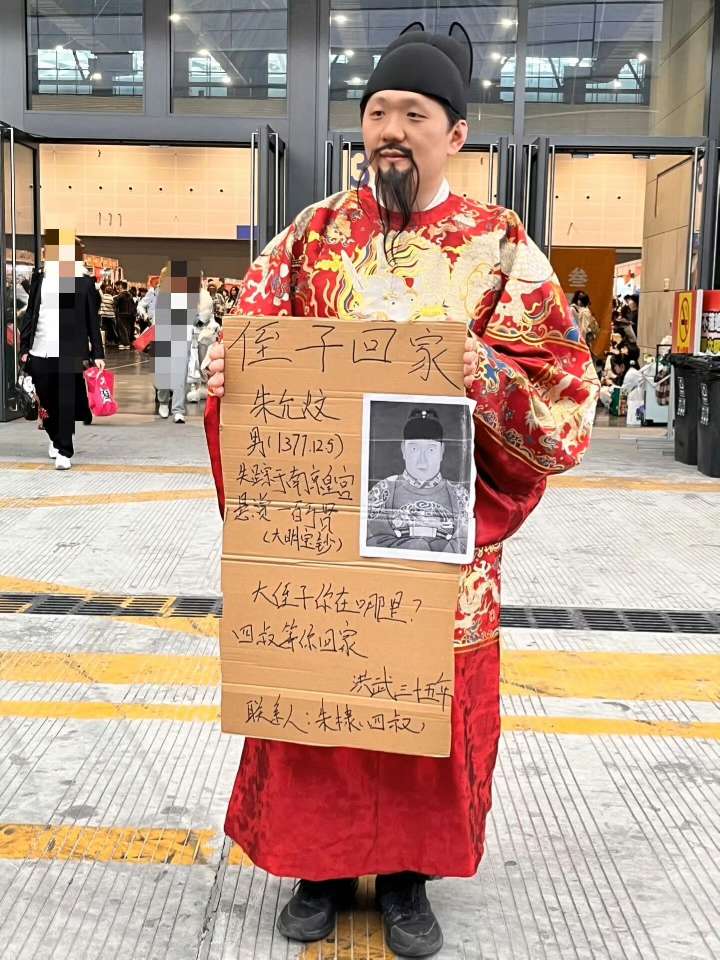 侄子回家
朱允炆
男(1377.12.5)
失踪于南京皇宫
悬赏一百年贯
(大明宝钞)
大侄子你在哪里?
四叔等你回家
洪武三十五年
联系人:朱棣(四叔)
3
叁